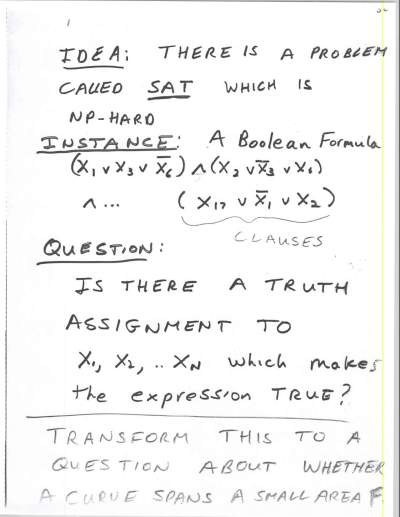 IDEA: THERE IS A PROBLEM
CALLED SAT WHICH IS
NP-HARD
INSTANCE: A Boolean Formula
(X₁ ∨ X₃ ∨ X̄₆) ∧ (X₂ ∨ X̄₃ ∨ X₆)
∧ ... (X₁₇ ∨ X̄₁ ∨ X₂)
CLAUSES
QUESTION:
IS THERE A TRUTH
ASSIGNMENT TO
X₁, X₂, .. X_N which makes
the expression TRUE?
TRANSFORM THIS TO A
QUESTION ABOUT WHETHER
A CURVE SPANS A SMALL AREA F